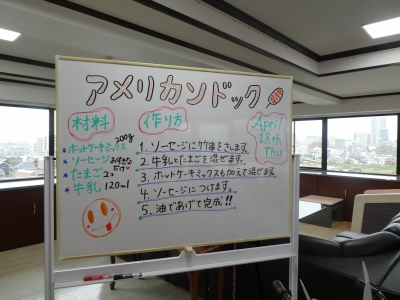 アメリカンドック
材料
ホットケーキミックス 200g
ソーセージ おすきなだけ
たまご 2コ
牛乳 120ml
作り方
1. ソーセージに竹串をさします。
2. 牛乳とたまごを混ぜます。
3. ホットケーキミックスも加えて混ぜます。
4. ソーセージにつけます。
5. 油であげて完成!!
April
18th
Thu